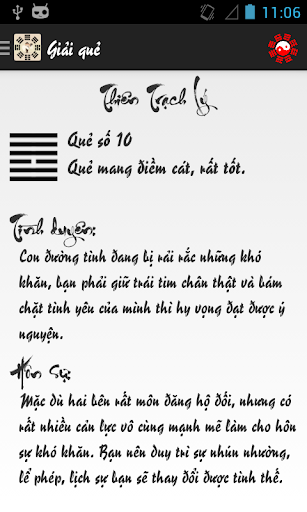 11:06
Giải quẻ
Thiên Trạch Lý
Quẻ số 10
Quẻ mang điềm cát, rất tốt.
Tình duyên:
Con đường tình đang bị rải rắc những khó
khăn, bạn phải giữ trái tim chân thật và bám
chặt tình yêu của mình thì hy vọng đạt được ý
nguyện.
Hôn Sự:
Mặc dù hai bên rất môn đăng hộ đối, nhưng có
rất nhiều cản lực vô cùng mạnh mẽ làm cho hôn
sự khó khăn. Bạn nên duy trì sự nhún nhường,
lể phép, lịch sự bạn sẽ thay đổi được tình thế.